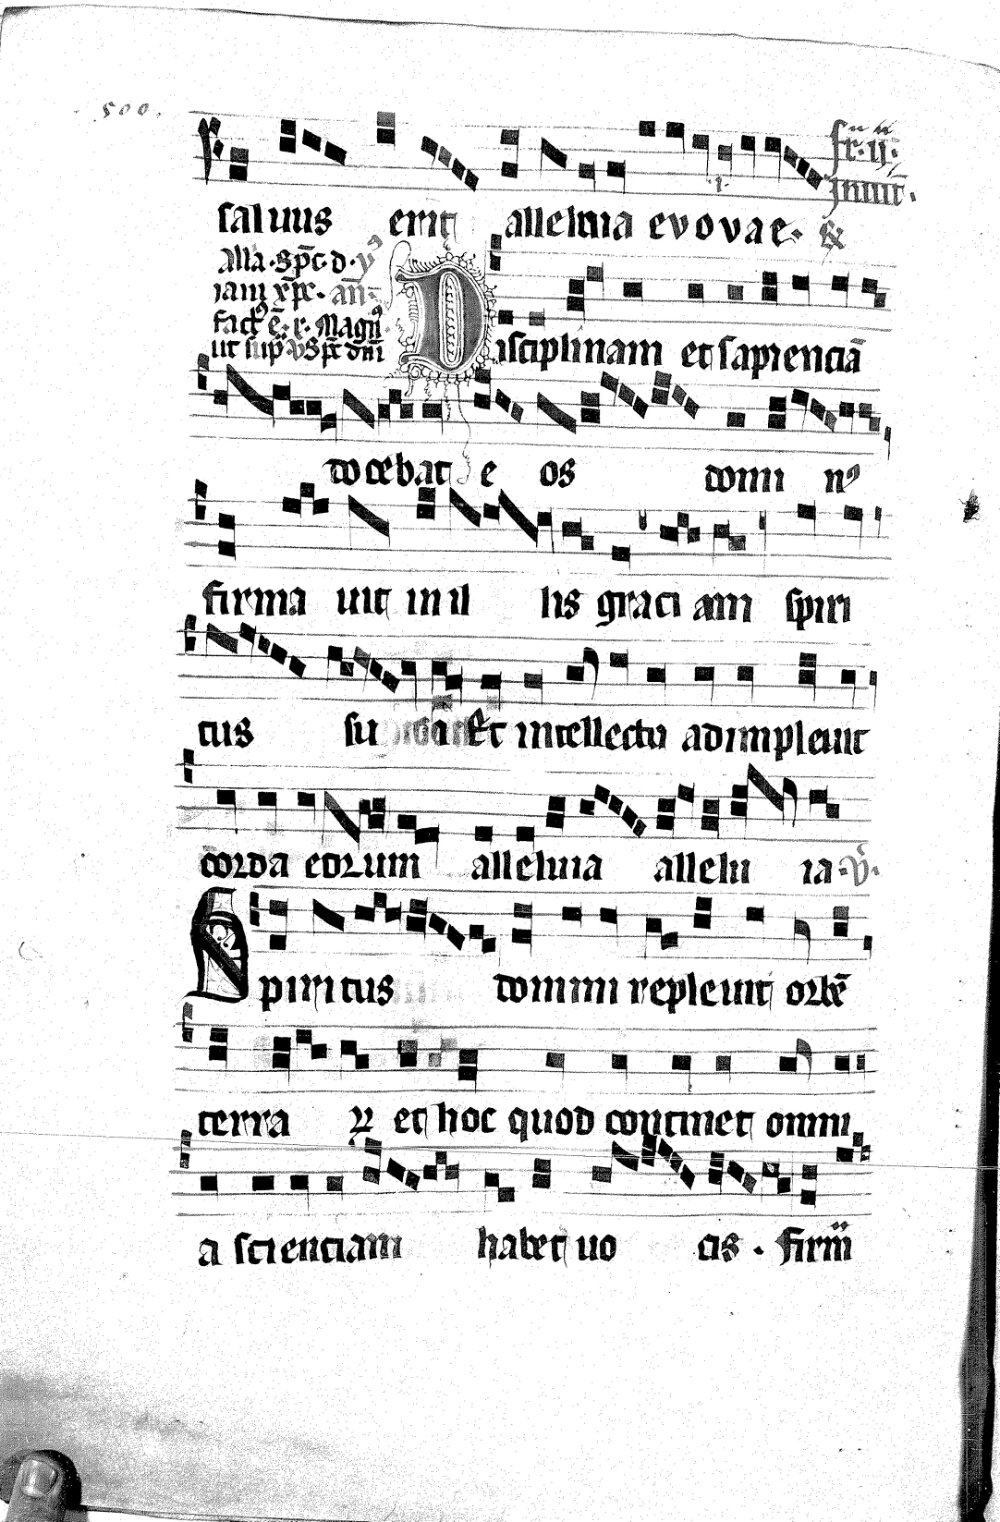 500.
fr. ij.
saluus erit alleluia evovae. &
Jnuit.
Alla. spc. d. y
iam xpc. an.
fact9 e. r. Magn
ut sup. v Spc dni
Disciplinam et sapienciā
docebat eos domin9
firmauit in illis graciam spiri
tus su Et intellectu adimpleuit
corda eorum alleluia alleluia. v.
Spiritus domini repleuit orbē
terraꝝ et hoc quod continet omni
a scienciam habet uocis. firm